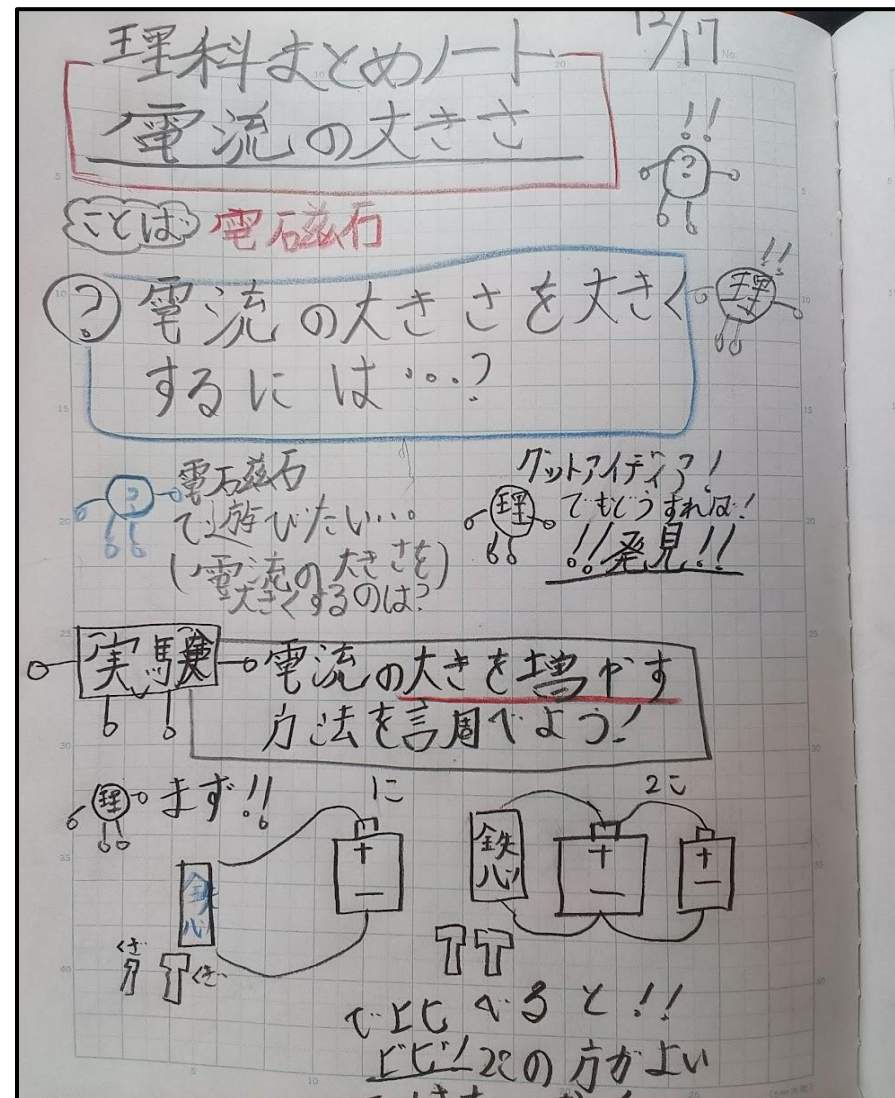 12/17
理科まとめノート
電流の大きさ
ことば 電磁石
? 電流の大きさを大きく
するには…?
電磁石
で遊びたい…。
(電流の大きさを)
大きくするのは?
グットアイディア!
でもどうすれば!
!!発見!!
実験 電流の大きさを増やす
方法を調べよう!
理 まず!!
1こ
2こ
鉄心
鉄心
+
-
+
-
+
-
くぎ
くぎ
で比べると!!
2この方がよい